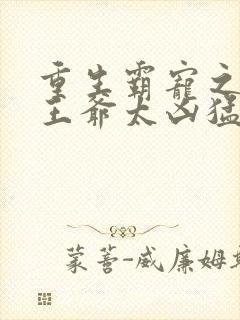 重生霸宠之
王爷太凶猛
蒙蓍-威廉姆斯